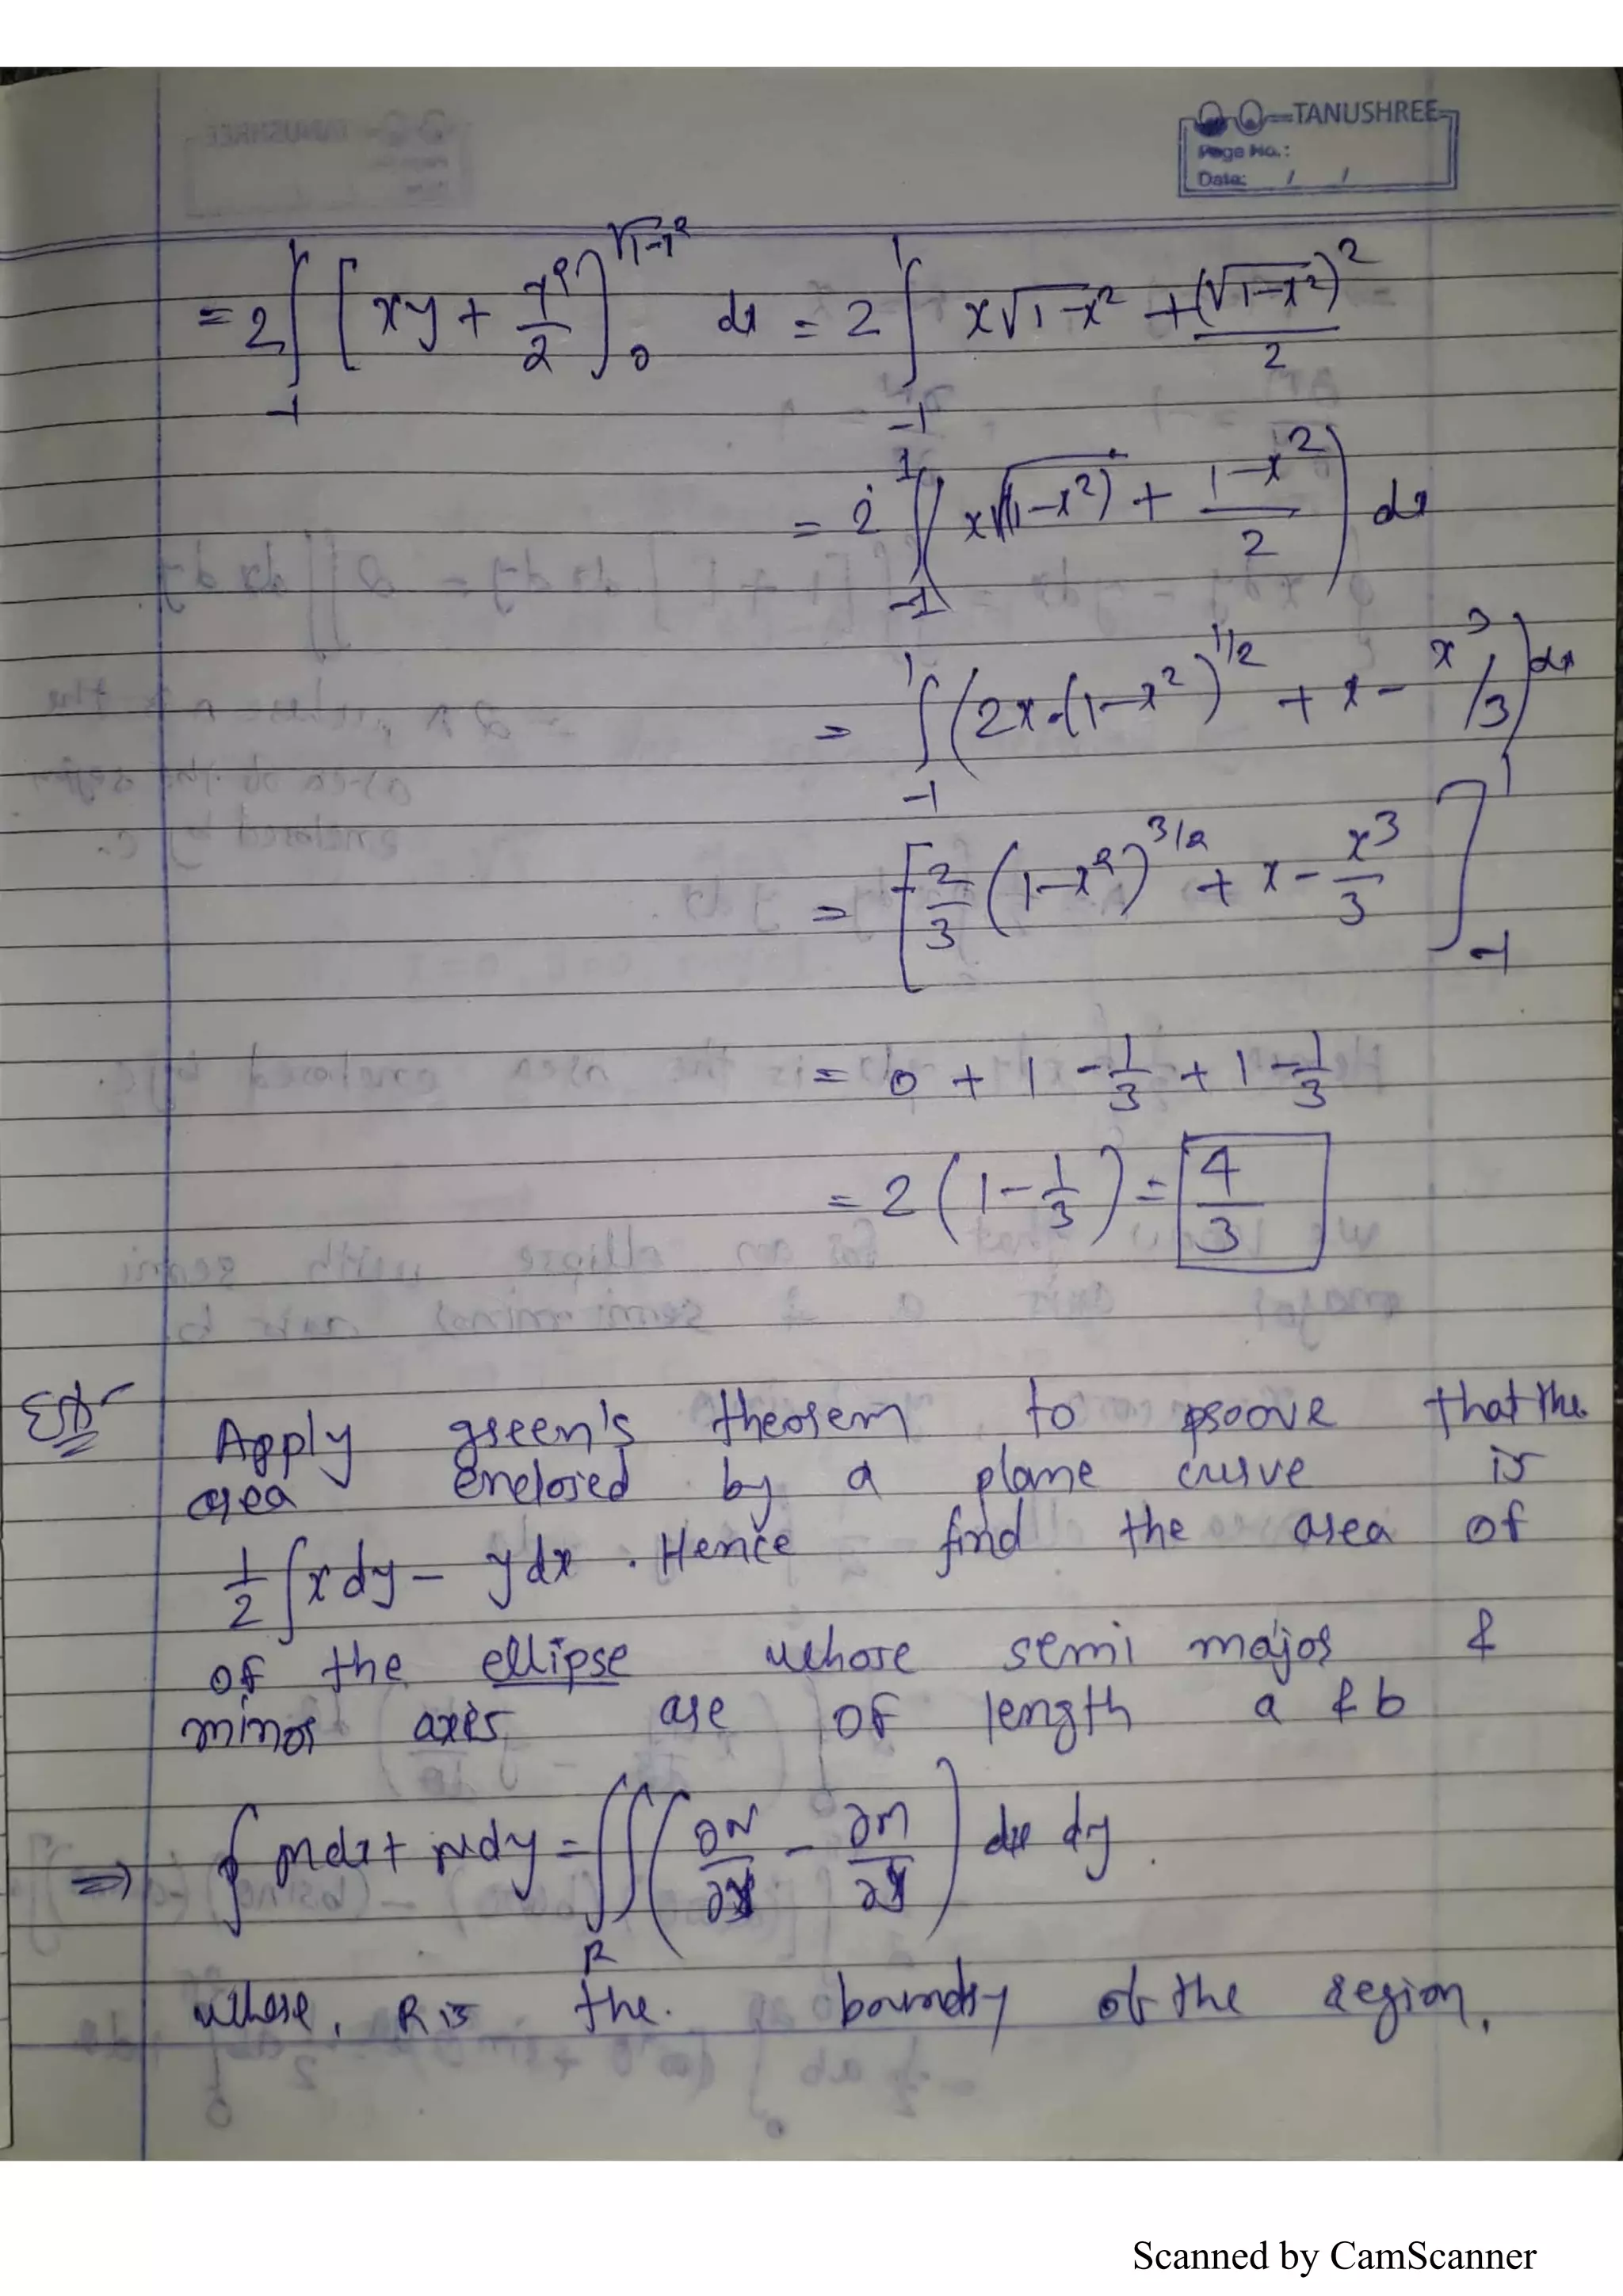 TANUSHREE
Page No.:
Date: / /
= 2 ∫_{-1}^{1} [xy + y²/2]_0^{√1-x²} dx = 2 ∫_{-1}^{1} x√1-x² + (√1-x²)²/2
= 2 ∫_{-1}^{1} (x√(1-x²) + 1-x²/2) dx
= ∫_{-1}^{1} (2x·(1-x²)^{1/2} + x - x³/3) dx
= [-2/3 (1-x²)^{3/2} + x - x³/3]_{-1}^{1}
= 0 + 1 - 1/3 + 1 - 1/3
= 2(1 - 1/3) = 4/3
Ex-
Apply green's theorem to proove that the
area enclosed by a plane curve is
1/2 ∫ xdy - ydx . Hence find the area of
of the ellipse whose semi major &
minor axes are of length a & b
⇒ ∮ Mdx + Ndy = ∫∫_R (∂N/∂x - ∂M/∂y) dx dy.
where, R is the. boundry of the region.
Scanned by CamScanner